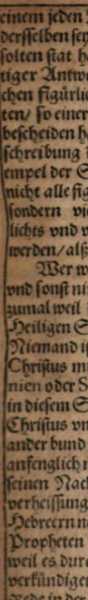 einem jeden
dersselben sey
solten stat h
tiger Antwo
chen figürlic
ten/ so einer
bescheiden h
schreibung
empel der S
nicht alle fig
sondern vie
lichts vnd v
werden/ als
Wer w
vnd sonst ni
zumal weil
Heiligen S
Niemand i
Christus m
nien oder S
in diesem S
Christus vn
ander bund
anfenglich
seinen Nac
verheissung
Hebreern n
Propheten
weil es durc
verkündiget